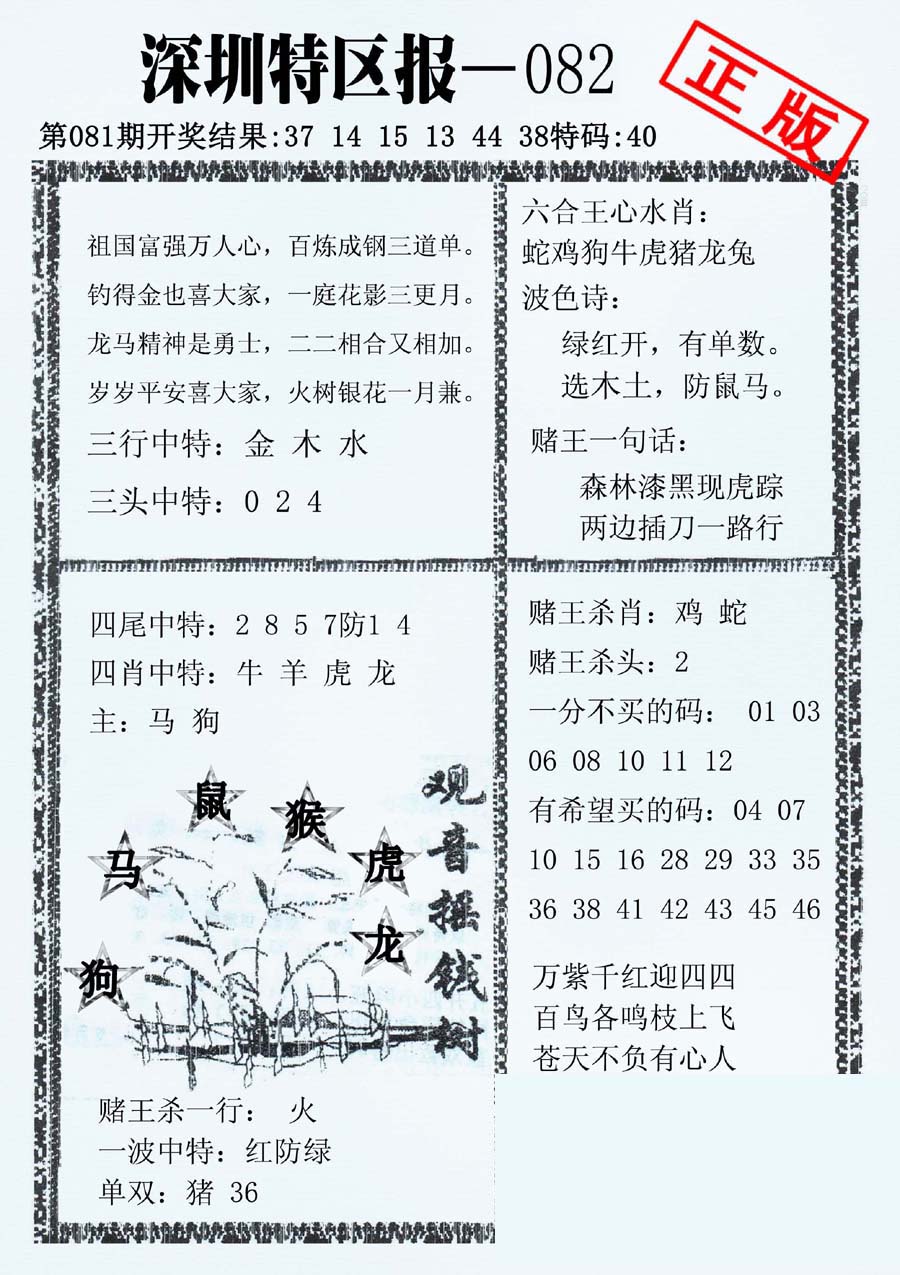 深圳特区报—082
正版
第081期开奖结果:37 14 15 13 44 38特码:40
祖国富强万人心，百炼成钢三道单。
钓得金也喜大家，一庭花影三更月。
龙马精神是勇士，二二相合又相加。
岁岁平安喜大家，火树银花一月兼。
三行中特：金 木 水
三头中特：0 2 4
六合王心水肖：
蛇鸡狗牛虎猪龙兔
波色诗：
绿红开，有单数。
选木土，防鼠马。
赌王一句话：
森林漆黑现虎踪
两边插刀一路行
四尾中特：2 8 5 7防1 4
四肖中特：牛 羊 虎 龙
主：马 狗
鼠
猴
马
虎
龙
狗
观音摇钱树
赌王杀一行： 火
一波中特：红防绿
单双：猪 36
赌王杀肖：鸡 蛇
赌王杀头：2
一分不买的码： 01 03
06 08 10 11 12
有希望买的码：04 07
10 15 16 28 29 33 35
36 38 41 42 43 45 46
万紫千红迎四四
百鸟各鸣枝上飞
苍天不负有心人